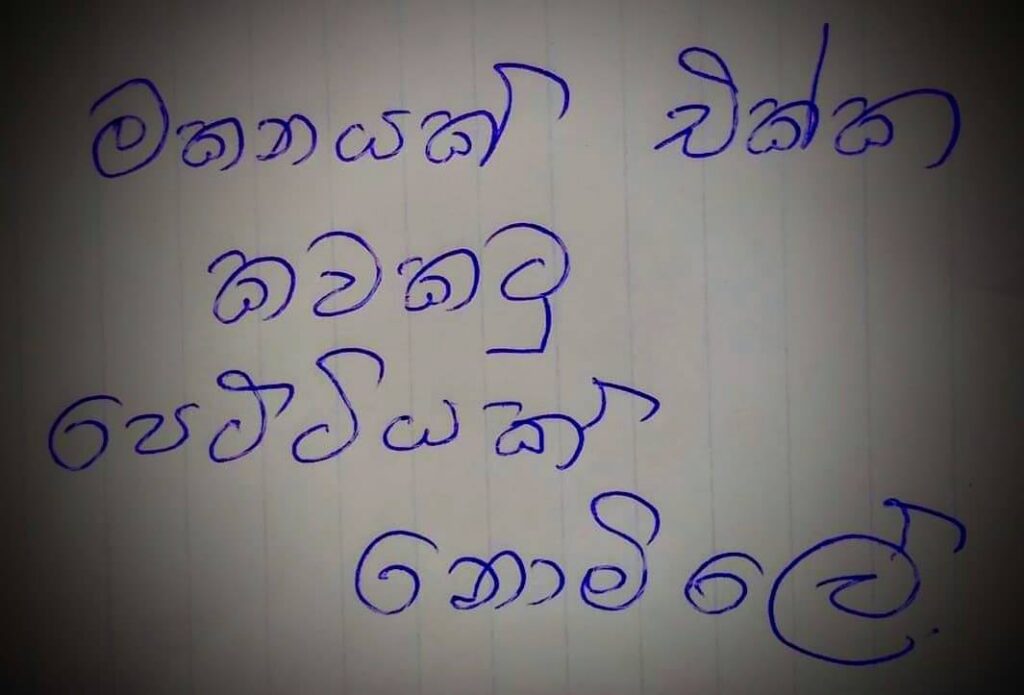 මකනයක් එක්ක
කවකටු
පෙට්ටියක්
නොමිලේ